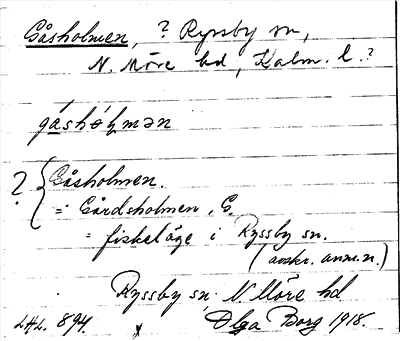 Gåsholmen, ? Ryssby sn,
N. Möre hd, Kalm. l.?
gáshòḷmən
? { Gåsholmen.
= Gårdsholmen, G.
= fiskeläge i Ryssby sn.
(avskr. anm.n.)
Ryssby sn. N. Möre hd
LHL. 894. Olga Borg 1918.